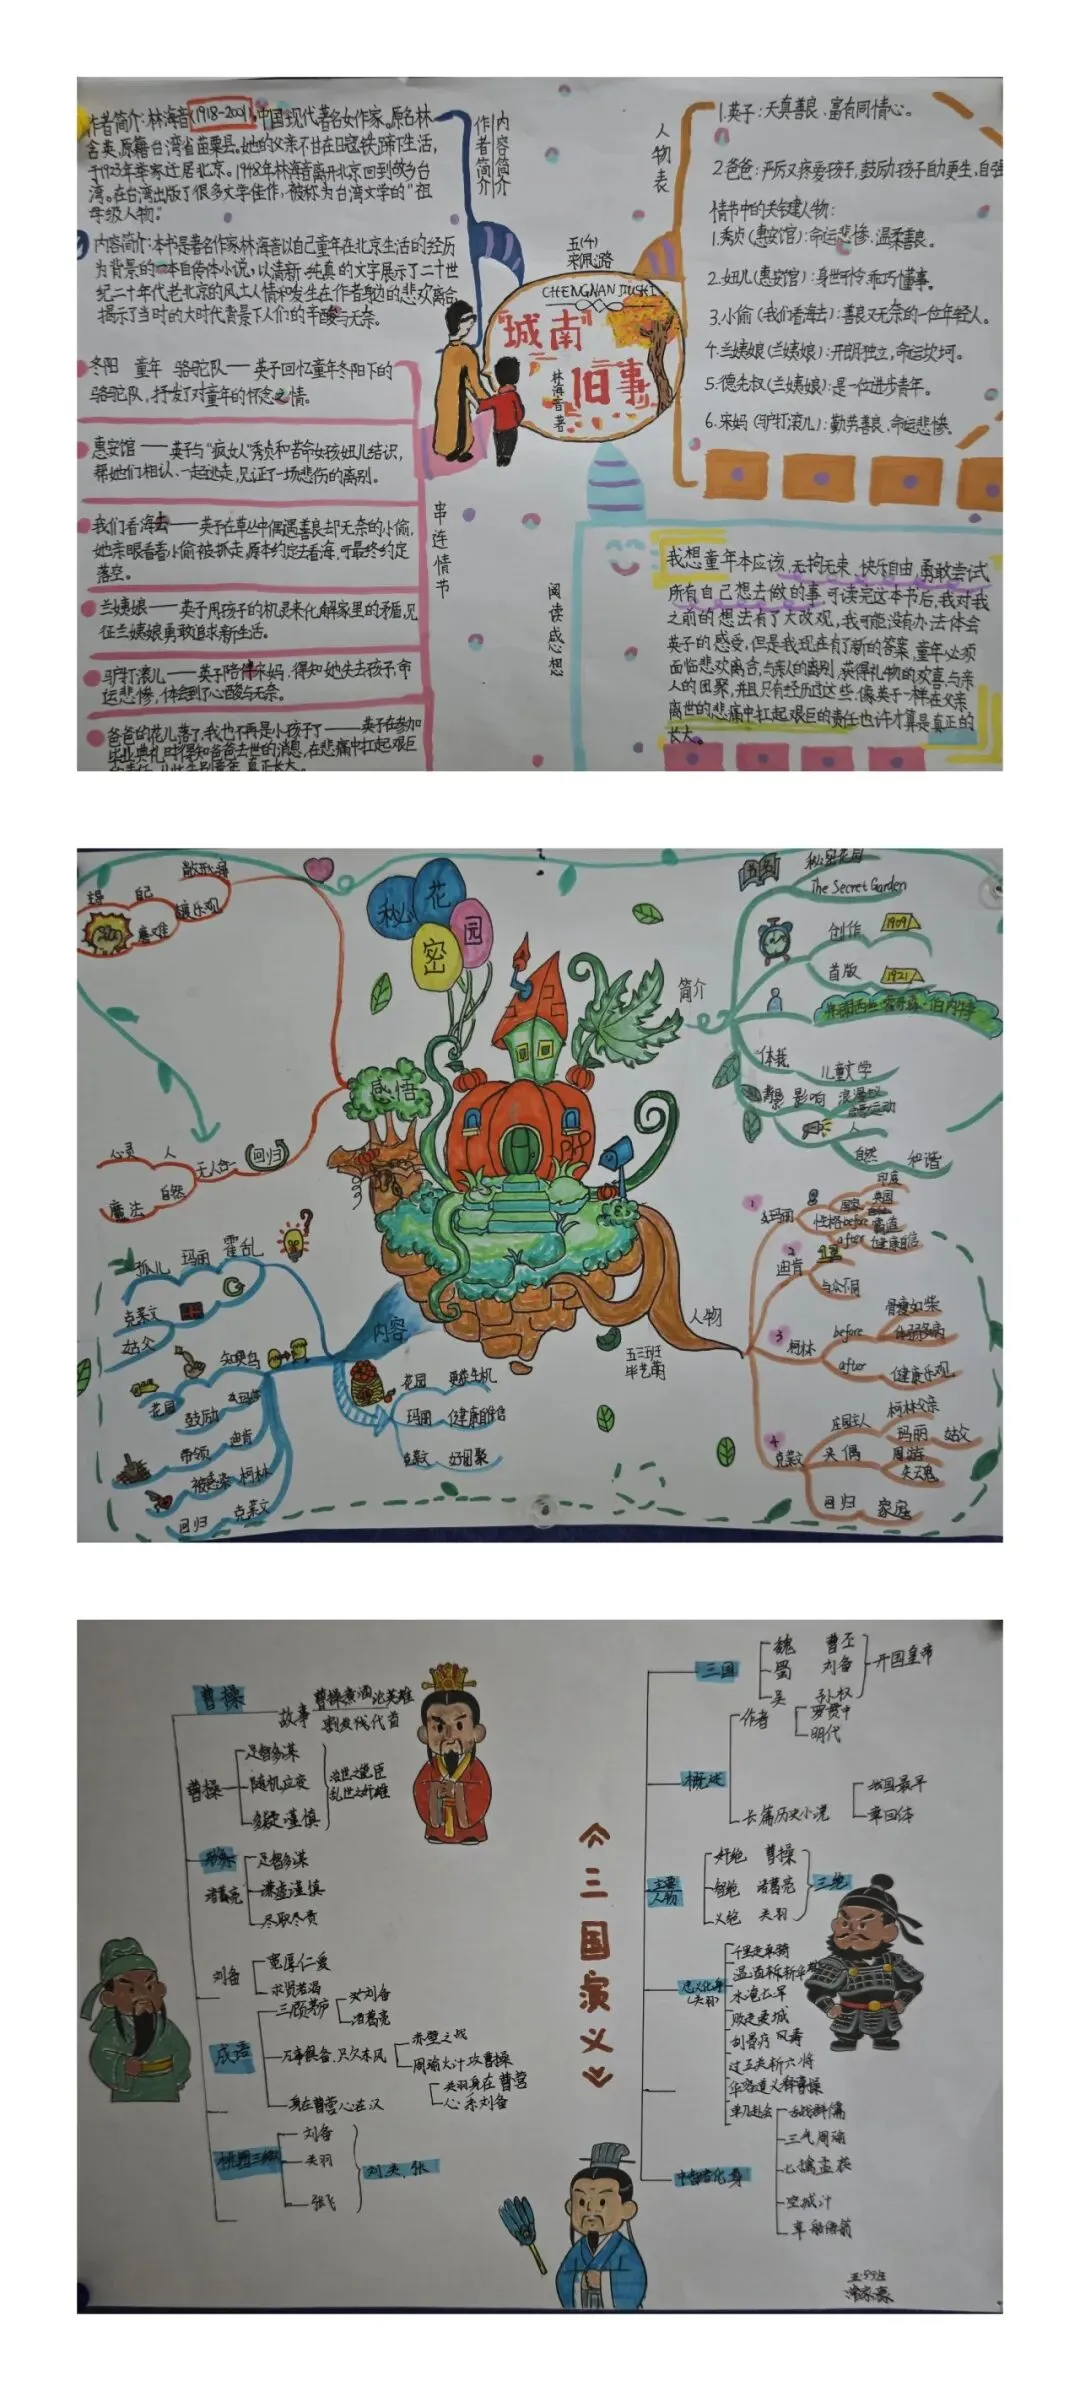 作者简介:林海音(1918-2001),中国现代著名女作家。原名林
含英,原籍台湾省苗栗县。她的父亲不甘在日寇铁蹄下生活,
于1923年举家迁居北京。1948年林海音离开北京回到故乡台
湾。在台湾出版了很多文学佳作,被称为台湾文学的“祖
母级人物。”
内容简介:本书是著名作家林海音以自己童年在北京生活的经历
为背景的一本自传体小说,以清新、纯真的文字展示了二十世
纪二十年代老北京的风土人情和发生在作者身边的悲欢离合,
揭示了当时的大时代背景下人们的辛酸与无奈。
冬阳 童年 骆驼队——英子回忆童年冬阳下的
骆驼队,抒发了对童年的怀念之情。
惠安馆——英子与“疯女”秀贞和苦命女孩妞儿结识,
帮她们相认、一起逃走,见证了一场悲伤的离别。
我们看海去——英子在草丛中偶遇善良却无奈的小偷,
她亲眼看着小偷被抓走,原本约定去看海,可最终约定
落空。
兰姨娘——英子用孩子的机灵来化解家里的矛盾,见
征兰姨娘勇敢追求新生活。
驴打滚儿——英子陪伴宋妈,得知她失去孩子,命
运悲惨,体会到了心酸与无奈。
爸爸的花儿落了,我也不再是小孩子了——英子在参加
毕业典礼时得知爸爸去世的消息,在悲痛中扛起艰巨
内容简介
作者简介
串连情节
五(4)
宋佩潞
CHENGNAN JIUSHI
"城南
旧事"
林海音著
人物表
1.英子:天真善良、富有同情心。
2.爸爸:严厉又疼爱孩子,鼓励孩子自助更生,自强
情节中的关键人物:
1.秀贞(惠安馆):命运悲惨、温柔善良。
2.妞儿(惠安馆):身世可怜、乖巧懂事。
3.小偷(我们看海去):善良又无奈的一位年轻人。
4.兰姨娘(兰姨娘):开朗独立,命运坎坷。
5.德先叔(兰姨娘):是一位进步青年。
6.宋妈(驴打滚儿):勤劳善良、命运悲惨。
阅读感想
我想童年本应该,无拘无束、快乐自由,勇敢尝试
所有自己想去做的事,可读完这本书后,我对我
之前的想法有了大改观,我可能没有办法体会
英子的感受,但是我现在有了新的答案,童年必须
面临悲欢离合,与亲人的离别,获得礼物的欢喜,与亲
人的团聚,并且只有经历过这些,像英子一样在父亲
离世的悲痛中扛起艰巨的责任也许才算是真正的
长大。
秘密花园
感悟
敞开心扉
自己
积极乐观
磨难
心灵 人
魔法 自然
无人生
回归
简介
书名
秘密花园
The Secret Garden
创作 1909
首版 1921
体裁 儿童文学
影响
人
自然 和谐
内容
孤儿 玛丽 霍乱
克莱文
姑父
知更鸟
花园
鼓励
带领 迪肯
被感染 柯林
回归 克莱文
花园
玛丽 健康自信
克莱文 好团聚
五三班
毕艺萌
人物
1 玛丽
国家 印度
英国
性格 before
after 健康自信
2 迪肯
与众不同
3 柯林
before 骨瘦如柴
体弱多病
after 健康乐观
4 克莱文
庄园主人 柯林父亲
玛丽 姑父
失偶 周游
回归 家庭
《三国演义》
曹操
故事 曹操煮酒论英雄
割发代首
曹操
足智多谋
随机应变
多疑谨慎
治世之能臣
乱世之奸雄
诸葛亮
足智多谋
谦虚谨慎
尽职尽责
刘备
宽厚仁爱
求贤若渴
成语
三顾茅庐
刘备
诸葛亮
万事俱备,只欠东风
赤壁之战
周瑜火计攻曹操
身在曹营心在汉
关羽身在曹营
心系刘备
桃园三结义
刘备
关羽
张飞
刘、关、张
三国
魏 曹丕
蜀 刘备
吴 孙权
开国皇帝
概述
作者
罗贯中
明代
长篇历史小说
我国最早
章回体
主要
人物
奸绝 曹操
智绝 诸葛亮
义绝 关羽
三绝
忠义化身
(关羽)
千里走单骑
温酒斩华雄
水淹七军
败走麦城
刮骨疗毒
过五关斩六将
华容道义释曹操
单刀赴会
舌战群儒
三气周瑜
七擒孟获
空城计
草船借箭